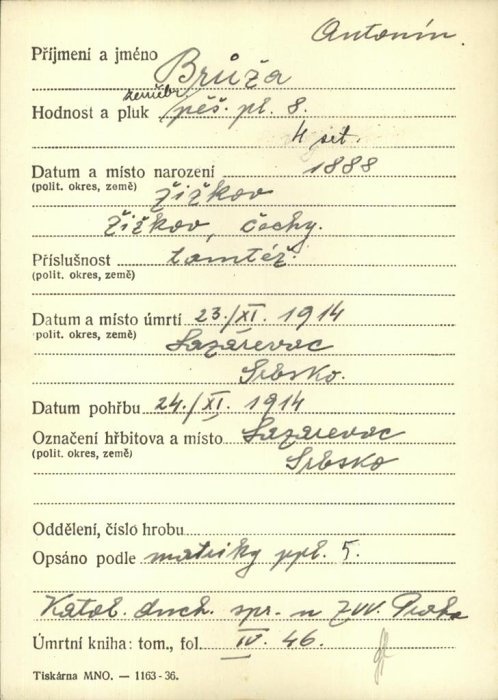 Antonín.
Příjmení a jméno Brůža
Hodnost a pluk zeměbr. pěš. pl. 8.
4 set.
Datum a místo narození 1888
(polit. okres, země) Žižkov
Žižkov, Čechy.
Příslušnost tamtéž.
(polit. okres, země)
Datum a místo úmrtí 23./XI. 1914
polit. okres, země) Lazarevac
Srbsko.
Datum pohřbu 24./XI. 1914
Označení hřbitova a místo Lazarevac
(polit. okres, země) Srbsko
Oddělení, číslo hrobu
Opsáno podle matriky ppl. 5.
Katol. duch. spr. u ZVV. Praha
Úmrtní kniha: tom., fol. IV. 46.
Tiskárna MNO. — 1163-36.